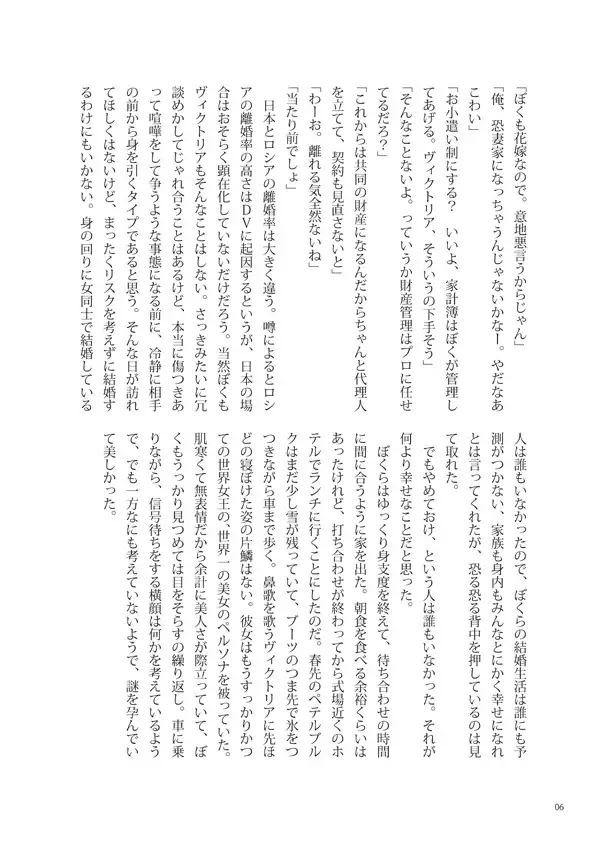 「ぼくも花嫁なので。意地悪言うからじゃん」
「俺、恐妻家になっちゃうんじゃないかなー。やだなあ
こわい」
「お小遣い制にする？　いいよ、家計簿はぼくが管理し
てあげる。ヴィクトリア、そういうの下手そう」
「そんなことないよ。っていうか財産管理はプロに任せ
てるだろ？」
「これからは共同の財産になるんだからちゃんと代理人
を立てて、契約も見直さないと」
「わーお。離れる気全然ないね」
「当たり前でしょ」
　日本とロシアの離婚率は大きく違う。噂によるとロシ
アの離婚率の高さはＤＶに起因するというが、日本の場
合はおそらく顕在化していないだけだろう。当然ぼくも
ヴィクトリアもそんなことはしない。さっきみたいに冗
談めかしてじゃれ合うことはあるけど、本当に傷つきあ
って喧嘩をして争うような事態になる前に、冷静に相手
の前から身を引くタイプであると思う。そんな日が訪れ
てほしくはないけど、まったくリスクを考えずに結婚す
るわけにもいかない。身の回りに女同士で結婚している
人は誰もいなかったので、ぼくらの結婚生活は誰にも予
測がつかない、家族も身内もみんなとにかく幸せになれ
とは言ってくれたが、恐る恐る背中を押しているのは見
て取れた。
　でもやめておけ、という人は誰もいなかった。それが
何より幸せなことだと思った。
　ぼくらはゆっくり身支度を終えて、待ち合わせの時間
に間に合うように家を出た。朝食を食べる余裕くらいは
あったけれど、打ち合わせが終わってから式場近くのホ
テルでランチに行くことにしたのだ。春先のペテルブル
クはまだ少し雪が残っていて、ブーツのつま先で氷をつ
つきながら車まで歩く。鼻歌を歌うヴィクトリアに先ほ
どの寝ぼけた姿の片鱗はない。彼女はもうすっかりかつ
ての世界女王の、世界一の美女のペルソナを被っていた。
肌寒くて無表情だから余計に美人さが際立っていて、ぼ
くもうっかり見つめては目をそらすの繰り返し。車に乗
りながら、信号待ちをする横顔は何かを考えているよう
で、でも一方なにも考えていないようで、謎を孕んでい
て美しかった。
06